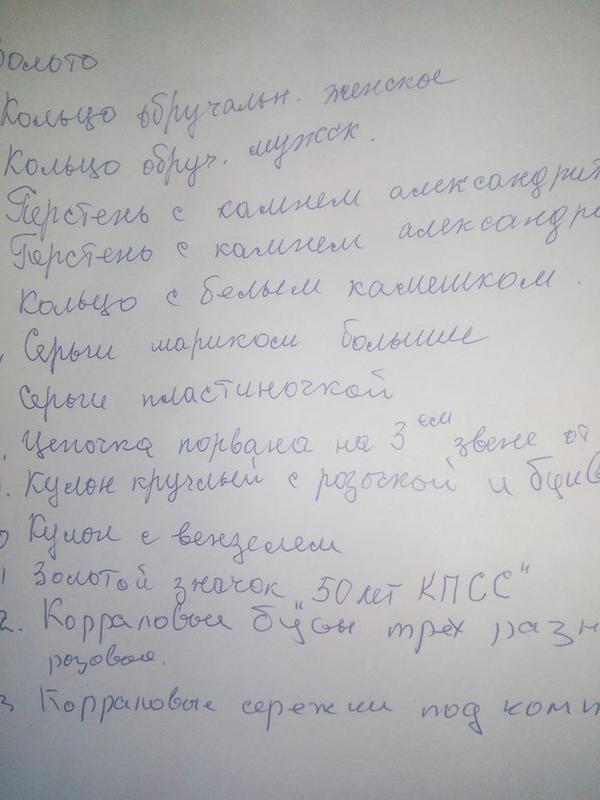 Золото
Кольцо обручальн. женское
Кольцо обруч. мужск.
Перстень с камнем александрит
Перстень с камнем александр
Кольцо с белым камешком.
Серьги шариком большие
Серьги пластиночкой
Цепочка порвана на 3ем звене от
Кулон круглый с розочкой и
Кулон с вензелем
1 Золотой значок "50 лет КПСС"
2. Корраловые бусы трех разн
розовые.
3 Корраловые сережки под комп